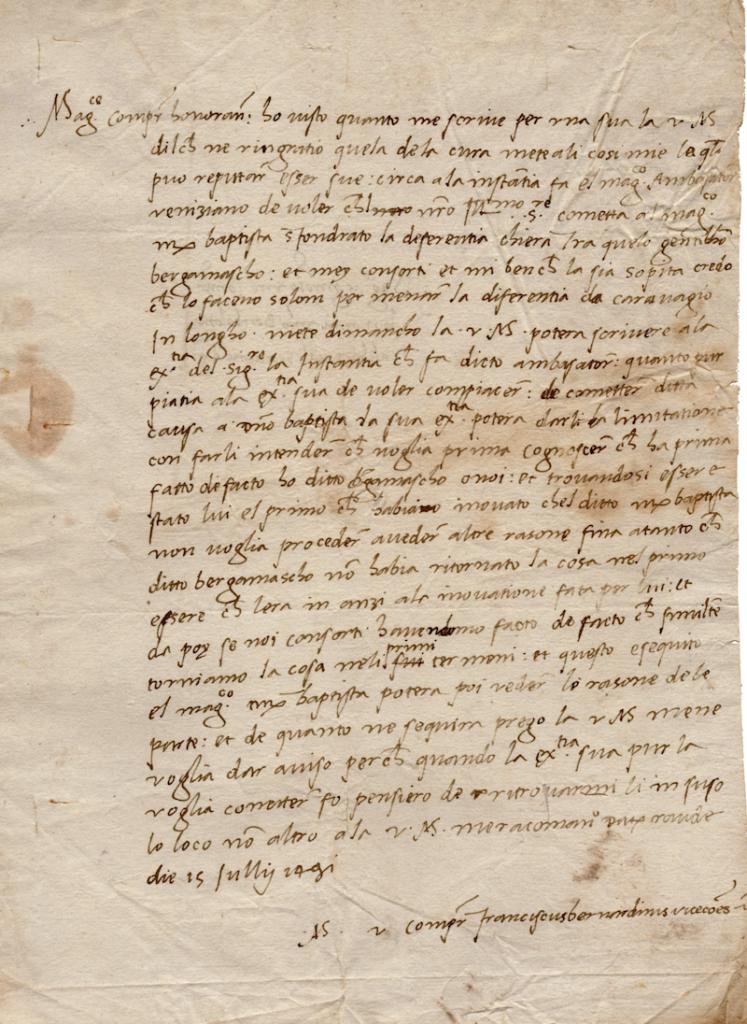 Mag.co Compr honoran: ho uisto quanto me scriue per una sua la v. M.
dilch ne ringratio quela dela cura mete ali cosi mie le ql
puo reputar esser sue: circa a la instantia fa el mag.co Ambasator
venitiano de voler ch nro s.re cometta al mag.co
baptista sfondrato la deferentia chiera tra quelo gentilho
bergamascho: et mey consorti et mi bench la sia sopita credo
ch lo faceuo solom per menar la diferentia da carauagio
In longho. niete dimancho la .v. M. potera scriuere a la
ex.tia del sig.re la Instantia ch fa dicto ambasator: quanto pur
piatia ala ex.tia sua de voler compiacer: de cometter ditta
causa a baptista la sua ex.tia potera darli la limitatione
con farli intender ch voglia prima cognoscer ch ha prima
fatto de facto ho ditto bgamascho o noi: et trouandosi essere
stato lui el primo ch habia inouato chel ditto baptista
non voglia proceder aueder altre rasone fina atanto ch
ditto bergamascho no habia ritornato la cosa nel primo
essere ch lera in anzi ala inouatione fata per lui: et
da poy se noi consorti hauendomo facto de facto ch
torniamo la cosa neli primi termeni: et questo esequito
el mag.co baptista potera poi veder le rasone dele
parte: et de quanto ne sequira prego la v M mene
voglia dar auiso perch quando la ex.tia sua pur la
voglia cometter fo pensiero de ritrouarmi li in suso
lo loco no altro a la v. M. me racoman
die 15 Jullij 1491
M. v Compr franciscus bernardinus vicecoes